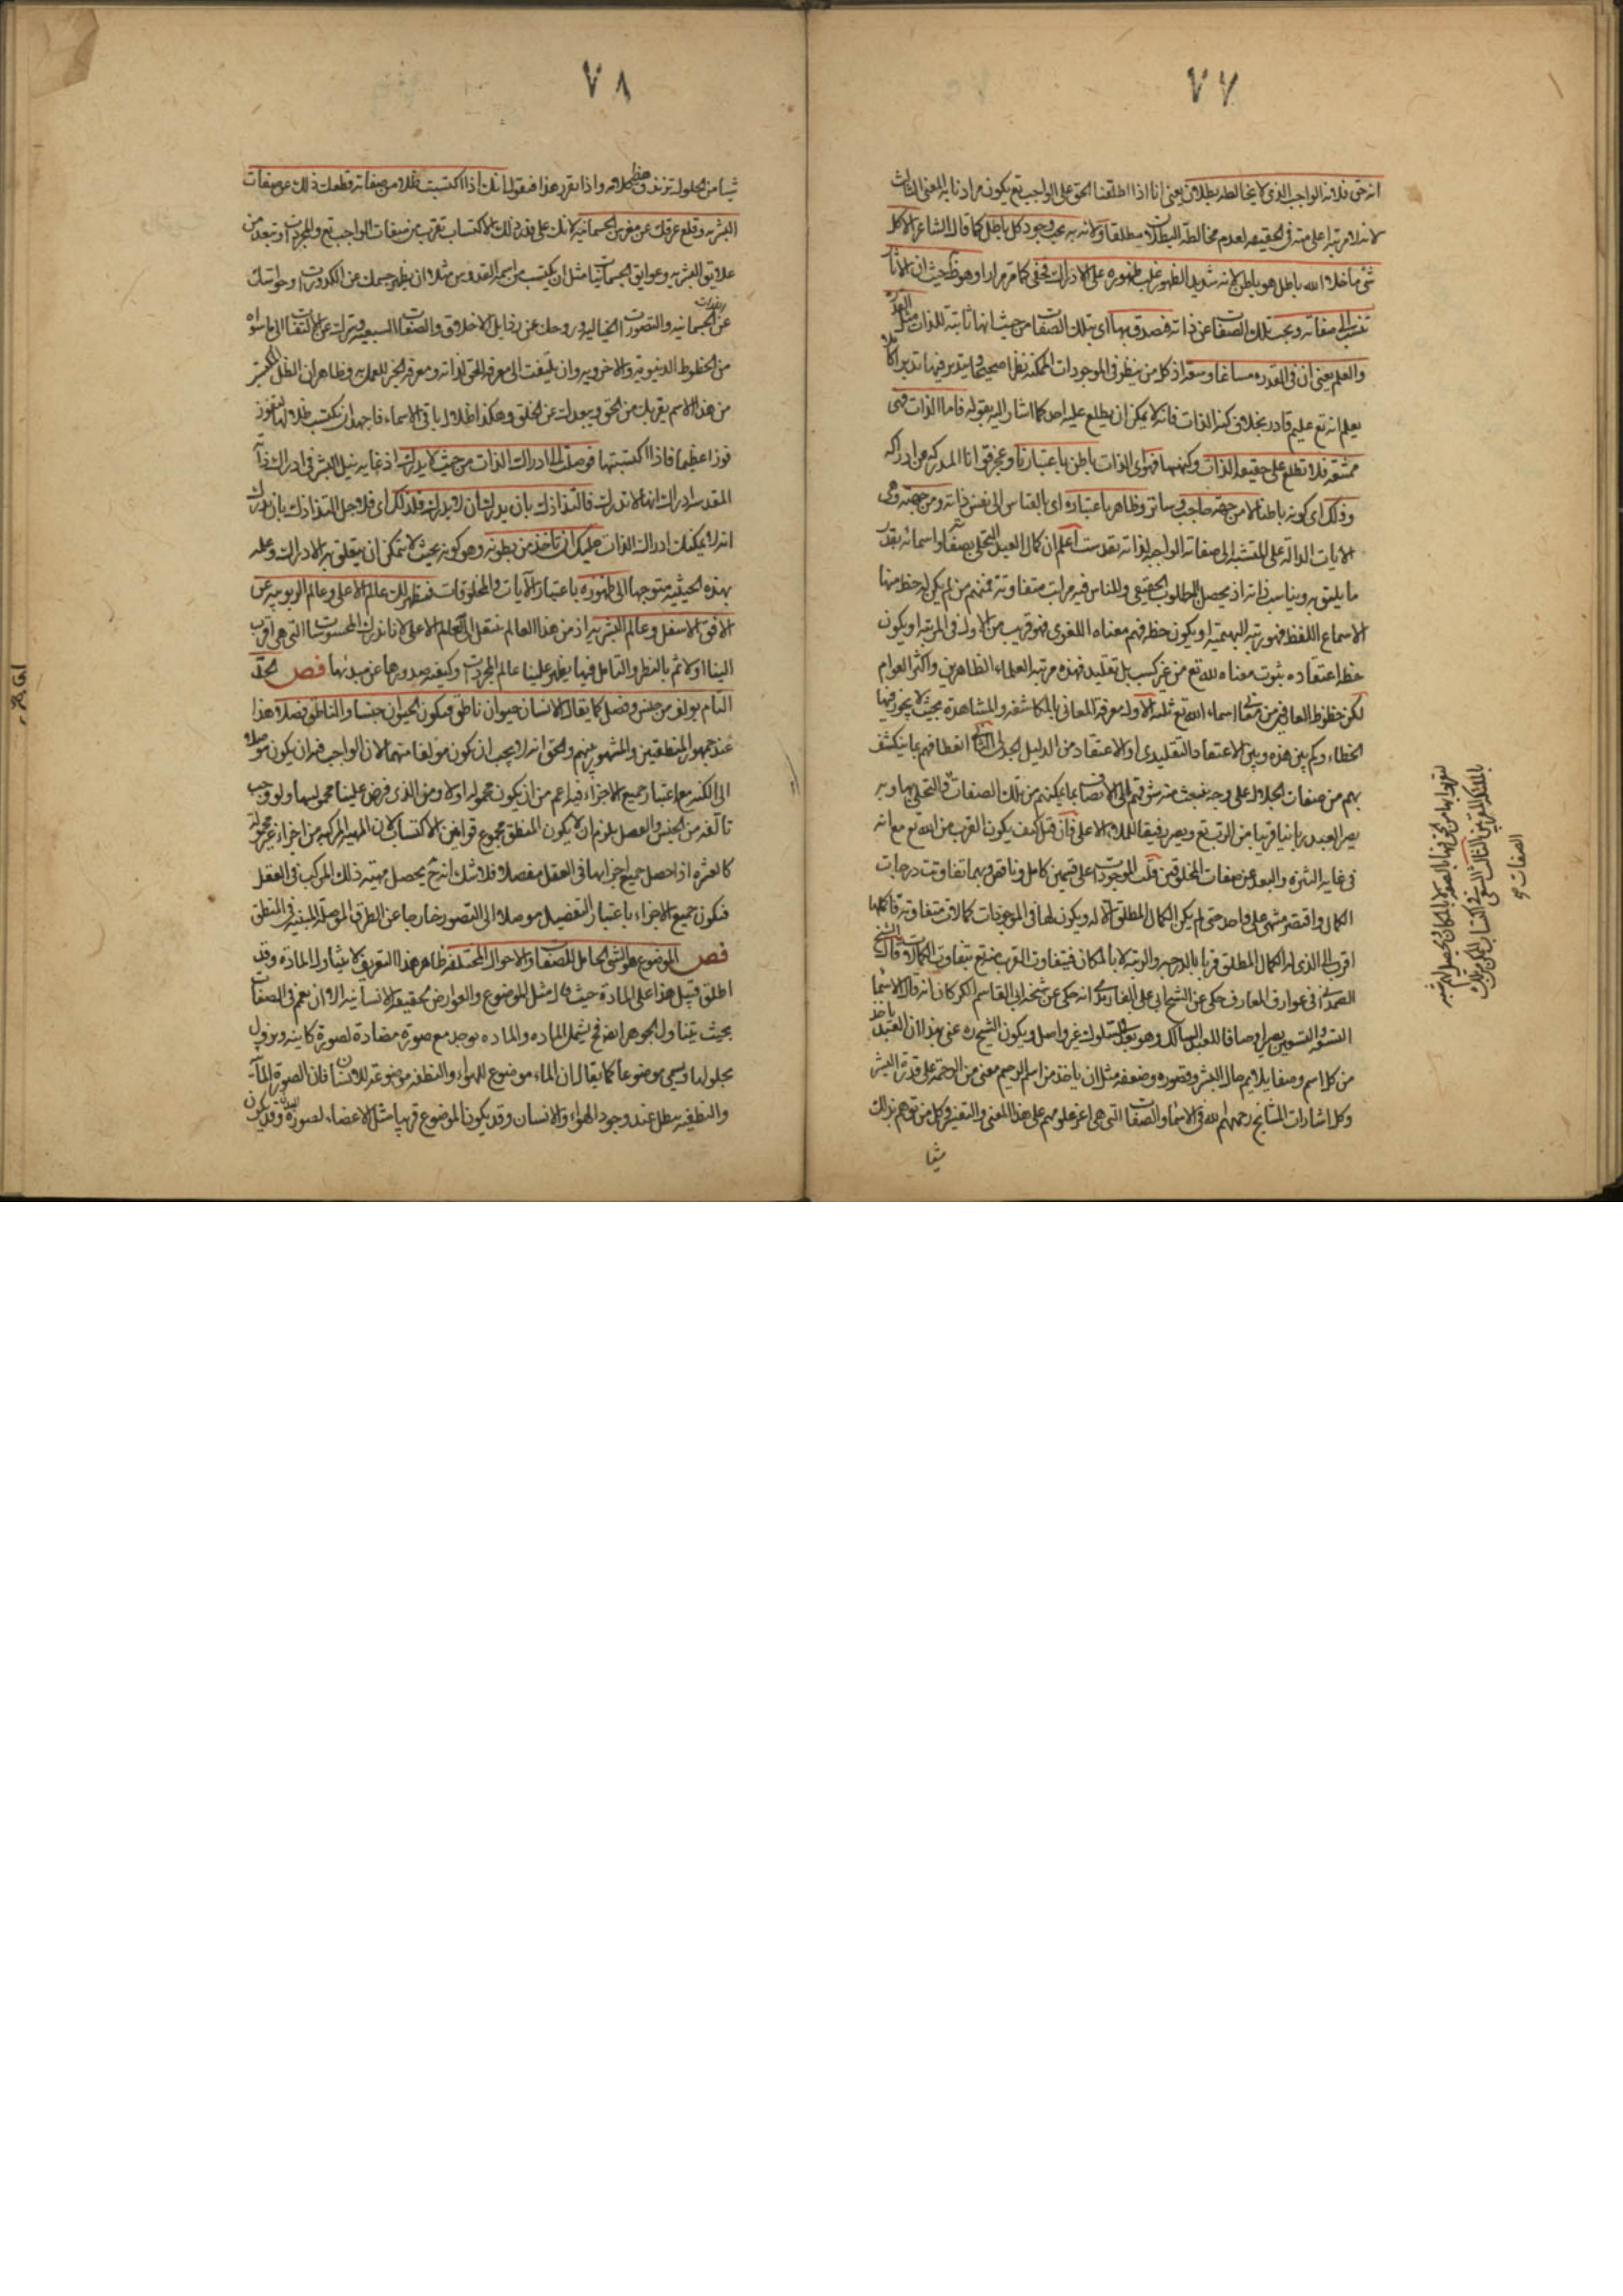 ٧٧
انه حق فلانه الواجب الذي لا يخالطه بطلان يعني انا اذا اطلقنا الحق على الواجب تع يكون مرادنا به المعنى الثالث
لانه لا مرتبة اعلى منه في الحقيقة لعدم مخالطة البطلان مطلقا ولانه به يجب وجود كل باطل كما قال الشاعر الا كل
شئ ما خلا الله باطل هو باطن لانه شديد الظهور غلب ظهوره على الادراك فخفي كما مر مرارا وهو ظ حيث ان الاثار
تنسب الى صفاته وتجب تلك الصفات عن ذاته فتصدق بها اي بتلك الصفات من حيث انها ثابتة للذات مثل القدرة
والعلم يعني ان في القدرة مساغا وسعة اذ كل من ينظر في الموجودات الممكنة نظرا صحيحا ويتدبر فيها تدبرا كاملا
يعلم انه تع عليم قادر بخلاف كنه الذات فانه لا يمكن ان يطلع عليه احد كما اشار اليه بقوله فاما الذات فهي
ممتنعة فلا تطلع على حقيقة الذات وكنهها فهو اي الذات باطن باعتبارنا وعجز قوانا المدركة عن ادراكه
وذلك اي كونه باطنا لا من جهته حاجب وساتر وظاهر باعتباره اي بالقياس الى نفس ذاته ومن جهته وهي
الايات الدالة على المنتسبة الى صفاته الواجبة لذاته تقدست اعلم ان كمال العبد التخلي بصفاته واسمائه بقدر
ما يليق به ويناسب ذاته اذ يحصل المطلوب الحقيقي وللناس فيه مراتب متفاوتة فمنهم من لم يكن له حظ منها
الا سماع اللفظ فهو رتبة البهيمية او يكون حظه فهم معناه اللغوي فهو قريب من الاول في المرتبة او يكون
حظه اعتقاده بثبوت معناه لله تع من غير كسب بل تقليد فهذه مرتبة العلماء الظاهرين واكثر العوام
لكن حظوظ العارفين من معاني اسماء الله تع ثلثة الاول معرفة المعاني بالمكاشفة والمشاهدة بحيث لا يجوز فيها
الخطاء وكم بين هذه وبين الاعتقاد التقليدي او الاعتقاد من الدليل الجدلي الثاني استعظامهم بما ينكشف
لهم من صفات الجلال على وجه ينبعث منه شوقهم الى الاتصاف بما يمكنهم من تلك الصفات والتحلي بها وبه
يصير العبد ربانيا قريبا من الرب تع ويصير رفيقا للملاء الاعلى فان قيل كيف يكون القرب من الله تع مع انه
في غاية التنزه والبعد عن صفات المخلوقين قلت الموجودات على قسمين كامل وناقص ومهما تفاوتت درجات
الكمال واقتصر منتهى على واحد حتى لم يكن الكمال المطلق الا له ويكون لها في الموجودات كمالات متفاوتة فاكملها
اقرب الى الذي له الكمال المطلق قربا بالدرجة والرتبة لا بالمكان فيتفاوت القرب منه تع بتفاوت الكمالات قال الشيخ
في عوارف المعارف حكي عن الشيخ ابي علي الفارمدي انه حكي عن شيخه ابي القاسم الكركاني انه قال الاسماء
التسعة والتسعين يصير اوصافا للعبد السالك وهو بعد في السلوك غير واصل ويكون الشيخ ره عنى بهذا ان العبد ياخذ
من كل اسم وصفا يلايم حال البشر وقصوره وضعفه مثل ان ياخذ من اسم الرحيم معنى من الرحمة على قدر البشر
وكل اشارات المشايخ رحمهم الله في الاسماء والصفات التي هي اعز علومهم على هذا المعنى والتفسير وكل من توهم بذلك
شيئا
٧٨
شيئا من الحلول تزندق والحد واذا تقرر هذا فنقول انك اذا اكتسبت ظلا من صفاته قطعك ذلك عن صفات
البشرية وقلع عرقك عن مغرس الجسمانية لانك على قدر ذلك الاكتساب تقرب من صفات الواجب تع والمجردات وتبعد من
علايق البشرية وعوايق الجسمانيات مثل ان يكتسب من اسمه القدوس مثلا ان يطهر جسمك عن الكدورات وحواسك
عن الجسمانية والتصورات الخيالية وروحك عن رذايل الاخلاق والصفات السبعية وسرك عن الالتفات الى ما سواه
من الحظوظ الدنيوية والاخروية وان يلتفت الى معرفة الحق لذاته ومعرفة الخير للعمل به فظاهر ان الظل المكتسب
من هذا الاسم يقربك من الحق ويبعدك عن الخلق وهكذا اظلال باقي الاسماء فاجهد ان يكتسب ظلالها لتفوز
فوزا عظيما فاذا اكتسبتها فوصلت الى ادراك الذات من حيث لا يدرك اذ غاية نيل البشر في ادراك ذاته
المقدسة ادراك انها لا تدرك فالتذاذك بان يدرك ان لا يدرك فلذلك اي فلاجل التذاذك بان تدرك
انه لا يمكنك ادراك الذات عليك ان تاخذ من بطونه وهو كونه بحيث لا يتمكن ان يتعلق به الادراك وعلمه
بهذه الحيثية متوجها الى ظهوره باعتبار الآيات والمخلوقات فيظهر لك عالم الاعلى وعالم الربوبية عن
الافق الاسفل وعالم البشرية اذ من هذا العالم ننتقل الى العالم الاعلى لانا ندرك المحسوسات التي هي اقرب
الينا اولا ثم بالنظر والتامل فيها يظهر علينا عالم المجردات وكيفية صدورها عن مبدئها فص الحد
التام يؤلف من جنس وفصل كما يقال الانسان حيوان ناطق فيكون الحيوان جنسا والناطق فصلا وهذا
عند جمهور المنطقيين والمشهور بينهم والحق انه لا يجب ان يكون مؤلفا منهما لان الواجب فيه ان يكون موصلا
الى الكنه مع اعتبار جميع الاجزاء فيه اعم من ان يكون محمولة او لا ومن الذي فرض علينا محموليها ولو وجب
تالفه من الجنس والفصل يلزم ان لا يكون المنطق مجموع قوانين الاكتساب لان المهية المركبة من اجزاء غير محمولة
كالعشرة اذا حصل جميع اجزائها في العقل مفصلا فلا شك انه ح يحصل مهية ذلك المركب في العقل
فيكون جميع الاجزاء باعتبار التفصيل موصلا الى التصور خارجا عن الطرق الموصلة المبينة في المنطق
فص الموضوع هو الشئ الحامل للصفات والاحوال المختلفة ظاهر هذا التعريف لا يتناول المادة وقد
اطلق قبيل هذا على المادة حيث قال مثل الموضوع والعوارض للحقيقة الانسانية الا ان يعمم في الصفات
بحيث يتناول الجوهر ايضا فح يشمل المادة والمادة يوجد مع صورة مضادة لصورة كاينة ويزول
بحلولها ويسمى موضوعا كما يقال ان الماء موضوع للهواء والنطفة موضوعة للانسان فان الصورة المائية
والنطفية يبطل عند وجود الهواء والانسان وقد يكون الموضوع قريبا مثل الاعضاء لصورة البدن وقد يكون